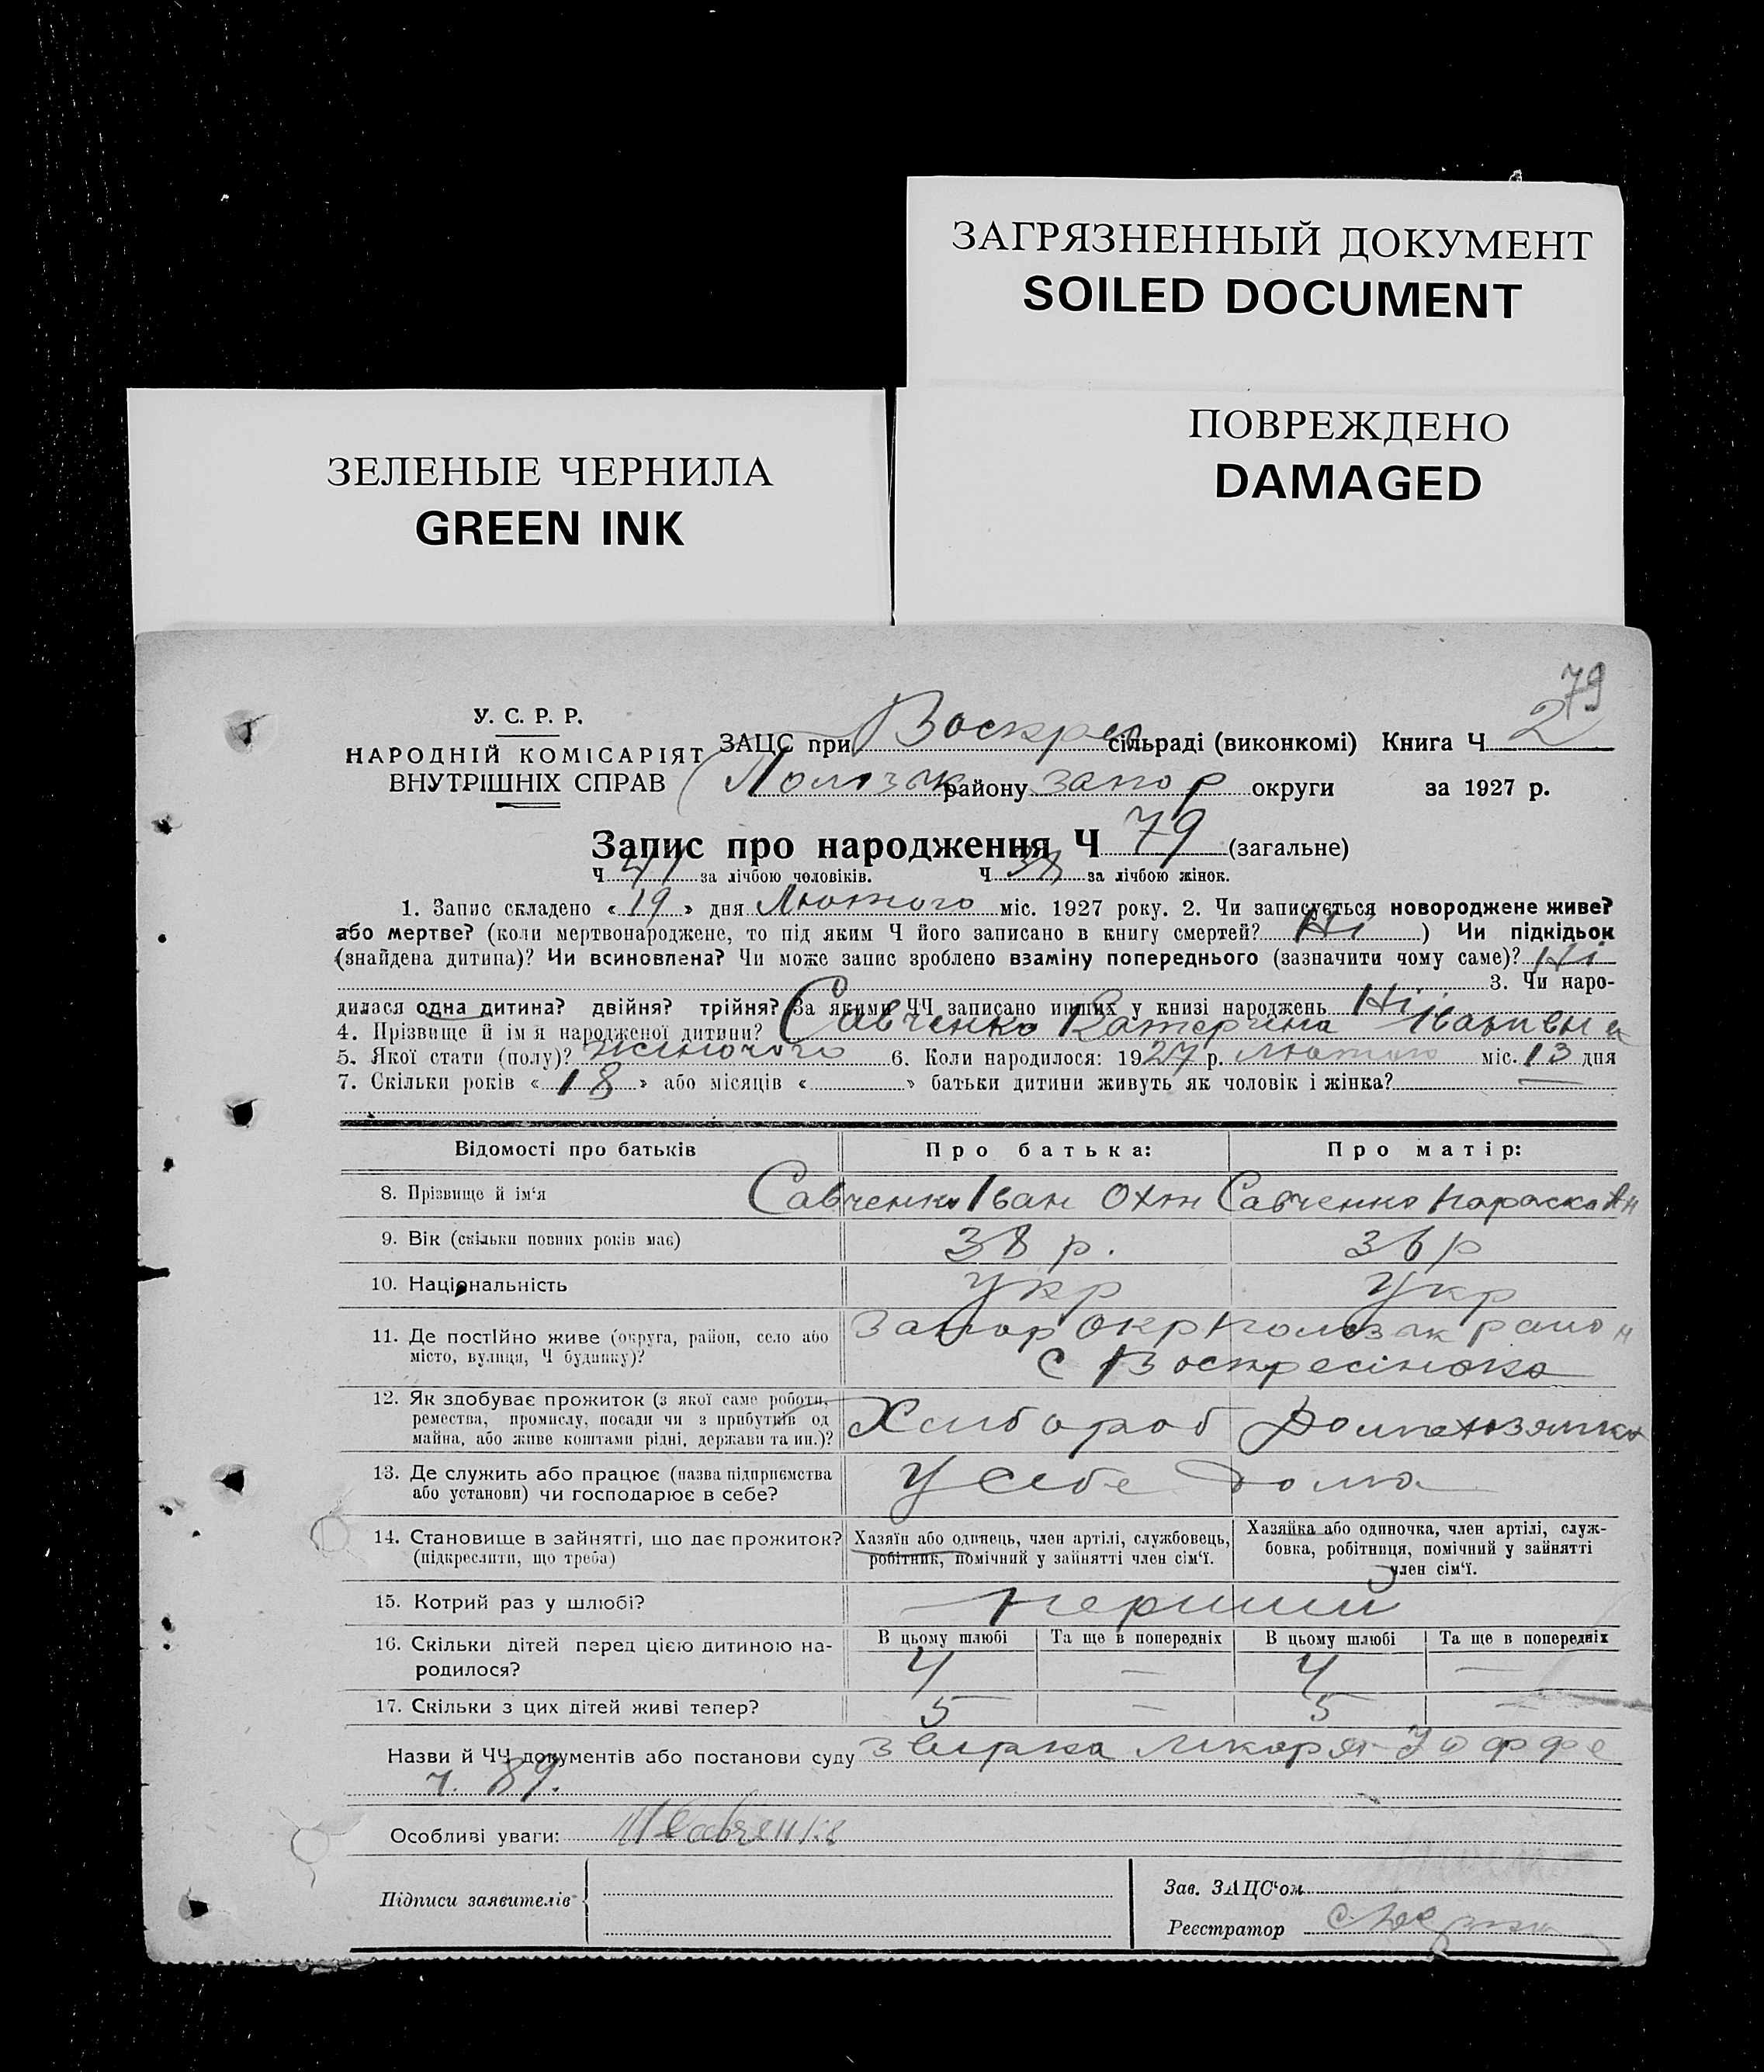 ЗАГРЯЗНЕННЫЙ ДОКУМЕНТ
SOILED DOCUMENT
ПОВРЕЖДЕНО
DAMAGED
ЗЕЛЕНЫЕ ЧЕРНИЛА
GREEN INK
79
У. С. Р. Р.
НАРОДНІЙ КОМІСАРІЯТ
ВНУТРІШНІХ СПРАВ
ЗАЦС при Воскрес сільраді (виконкомі) Книга Ч 2
району запор округи за 1927 р.
Запис про народження Ч 79 (загальне)
Ч 41 за лічбою чоловіків. Ч 38 за лічбою жінок.
1. Запис складено « 19 » дня Лютого міс. 1927 року. 2. Чи записується новороджене живе?
або мертве? (коли мертвонароджене, то під яким Ч його записано в книгу смертей? Ні ) Чи підкідьок
(знайдена дитина)? Чи всиновлена? Чи може запис зроблено взаміну попереднього (зазначити чому саме)? Ні
3. Чи наро-
дилася одна дитина? двійня? трійня? За якими ЧЧ записано инших у книзі народжень Ні
4. Прізвище й ім'я народженої дитини? Савченко Катерина Іванівна
5. Якої стати (полу)? Жіночого 6. Коли народилося: 1927 р. лютого міс. 13 дня
7. Скільки років « 18 » або місяців « » батьки дитини живуть як чоловік і жінка? —
Відомості про батьків Про батька: Про матір:
8. Прізвище й ім'я Савченко Іван Охт Савченко Параска Ан
9. Вік (скільки повних років має) 38 р. 36 р
10. Національність Укр Укр
11. Де постійно живе (округа, район, село або Запор Окр район
місто, вулиця, Ч будинку)? С Воскресінска
12. Як здобуває прожиток (з якої саме роботи,
ремества, промислу, посади чи з прибутків од Хлібороб
майна, або живе коштами рідні, держави та ин.)?
13. Де служить або працює (назва підприємства У себе дома
або установи) чи господарює в себе?
14. Становище в зайнятті, що дає прожиток? Хазяїн або одинець, член артілі, службовець, Хазяйка або одиночка, член артілі, служ-
(підкреслити, що треба) робітник, помічний у зайнятті член сім'ї. бовка, робітниця, помічний у зайнятті
член сім'ї.
15. Котрий раз у шлюбі? перший
16. Скільки дітей перед цією дитиною на- В цьому шлюбі Та ще в попередніх В цьому шлюбі Та ще в попередніх
родилося? 4 — 4 —
17. Скільки з цих дітей живі тепер? 5 — 5 —
Назви й ЧЧ документів або постанови суду лікаря Іоффе
ч. 89.
Особливі уваги: Савченко
Підписи заявителів
Зав. ЗАЦС'ом
Реєстратор